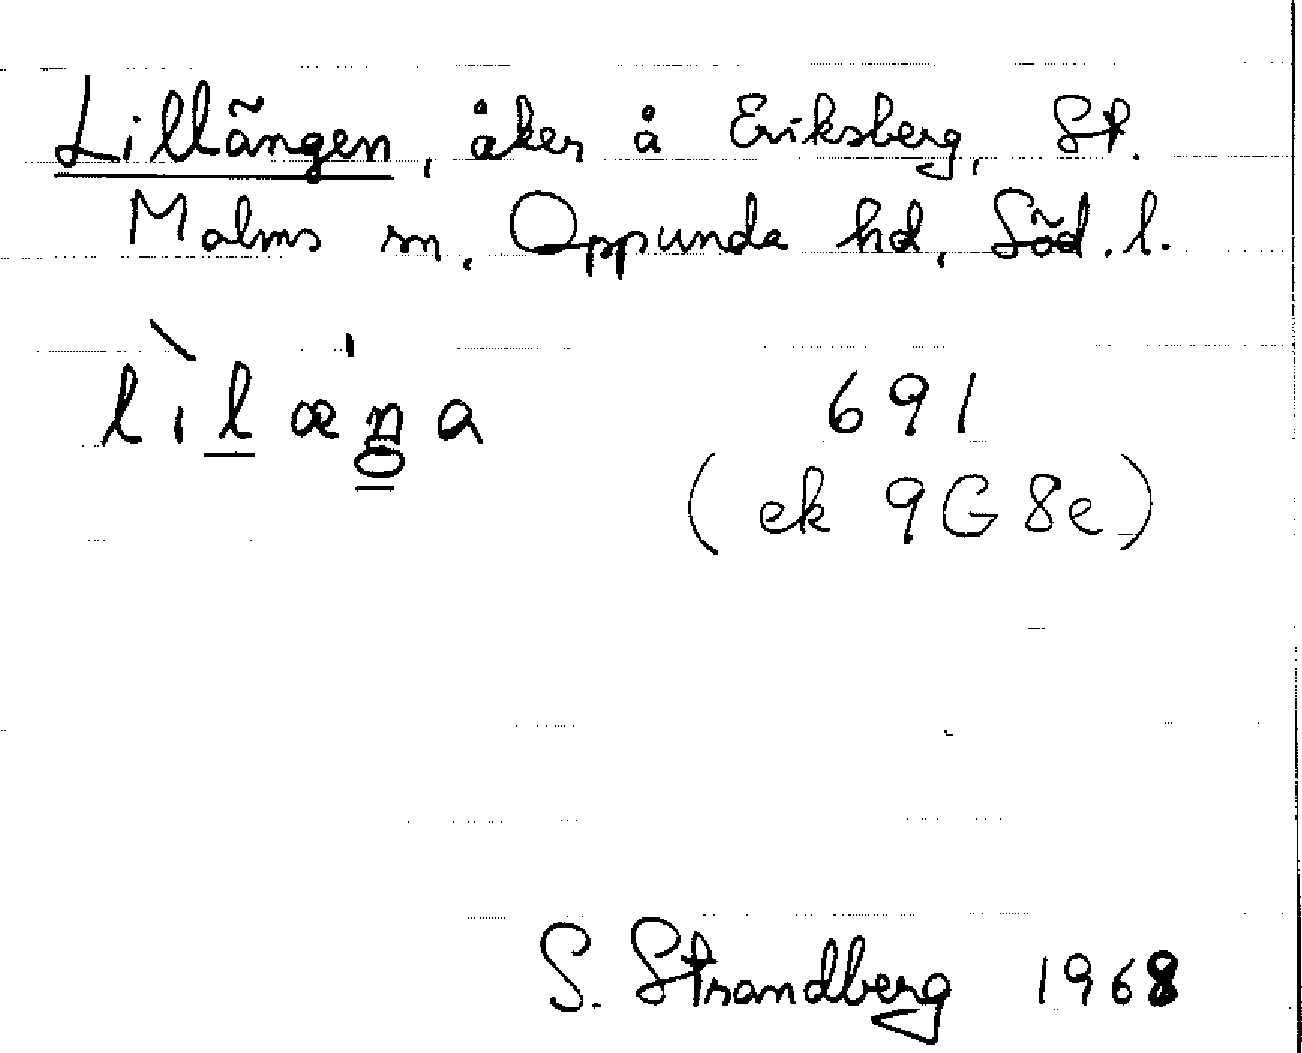 Lillängen, åker å Eriksberg, St.
Malms sn, Oppunda hd, Söd. l.
lìlæŋa
691
(ek 9G 8e)
S. Strandberg 1968